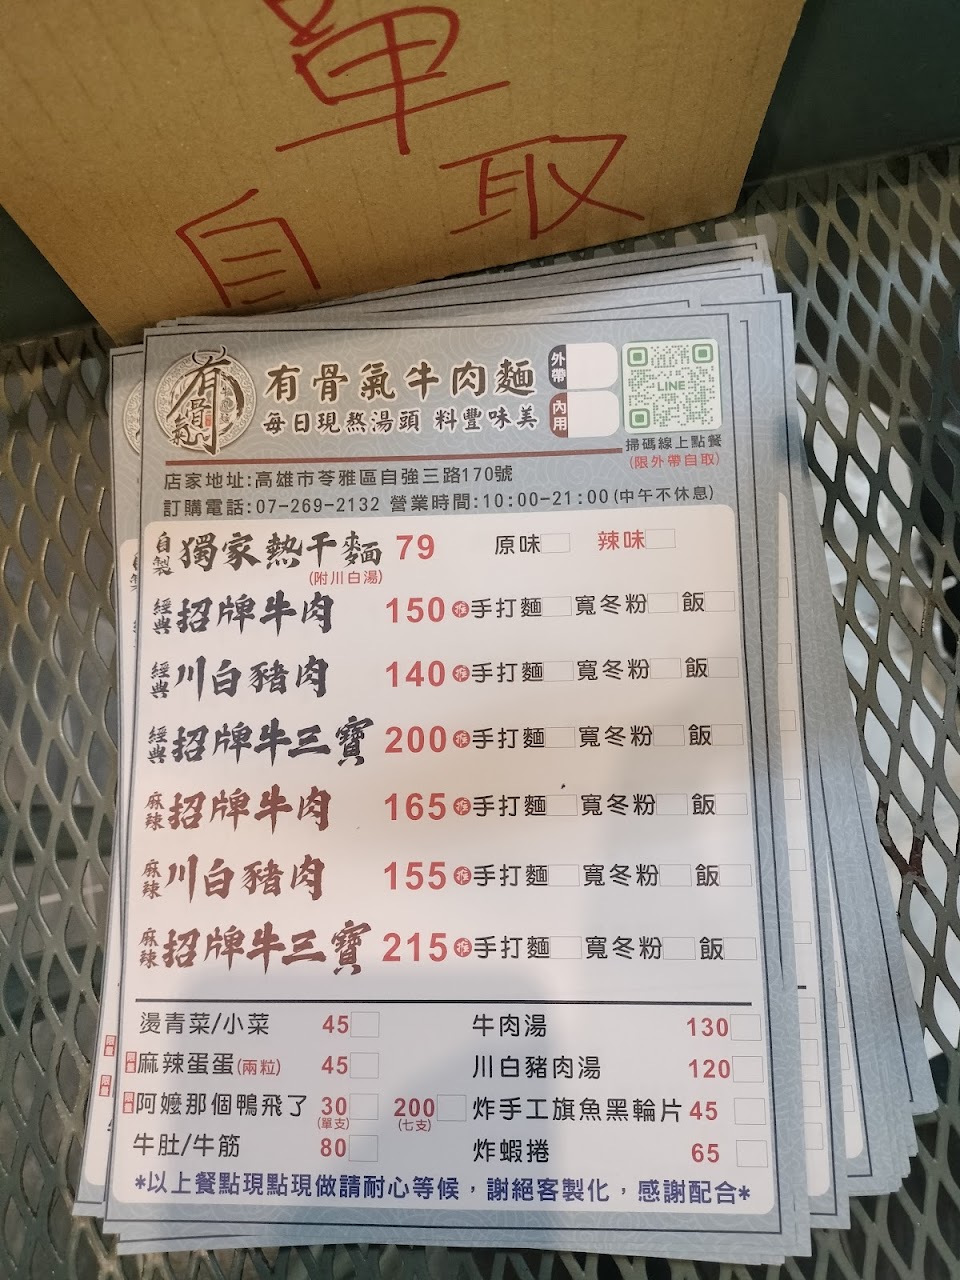 單
自取
有骨氣
有骨氣牛肉麵
每日現熬湯頭 料豐味美
外帶
內用
LINE
掃碼線上點餐
(限外帶自取)
店家地址:高雄市苓雅區自強三路170號
訂購電話:07-269-2132 營業時間:10:00-21:00(中午不休息)
自製 獨家熱干麵 79 原味 辣味
(附川白湯)
經典 招牌牛肉 150 推 手打麵 寬冬粉 飯
經典 川白豬肉 140 推 手打麵 寬冬粉 飯
經典 招牌牛三寶 200 推 手打麵 寬冬粉 飯
麻辣 招牌牛肉 165 推 手打麵 寬冬粉 飯
麻辣 川白豬肉 155 推 手打麵 寬冬粉 飯
麻辣 招牌牛三寶 215 推 手打麵 寬冬粉 飯
燙青菜/小菜 45 牛肉湯 130
限量 麻辣蛋蛋(兩粒) 45 川白豬肉湯 120
限量 阿嬤那個鴨飛了 30(單支) 200(七支) 炸手工旗魚黑輪片 45
牛肚/牛筋 80 炸蝦捲 65
*以上餐點現點現做請耐心等候，謝絕客製化，感謝配合*